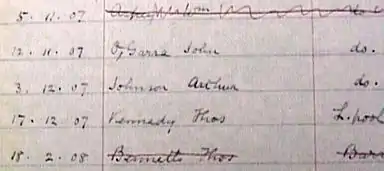 5. 11. 07 do
12. 11. 07 O'Garra John do.
3. 12. 07 Johnson Arthur do.
17. 12 07 Kennedy Thos L.pool
18. 2. 08 Bennett Thos Barr